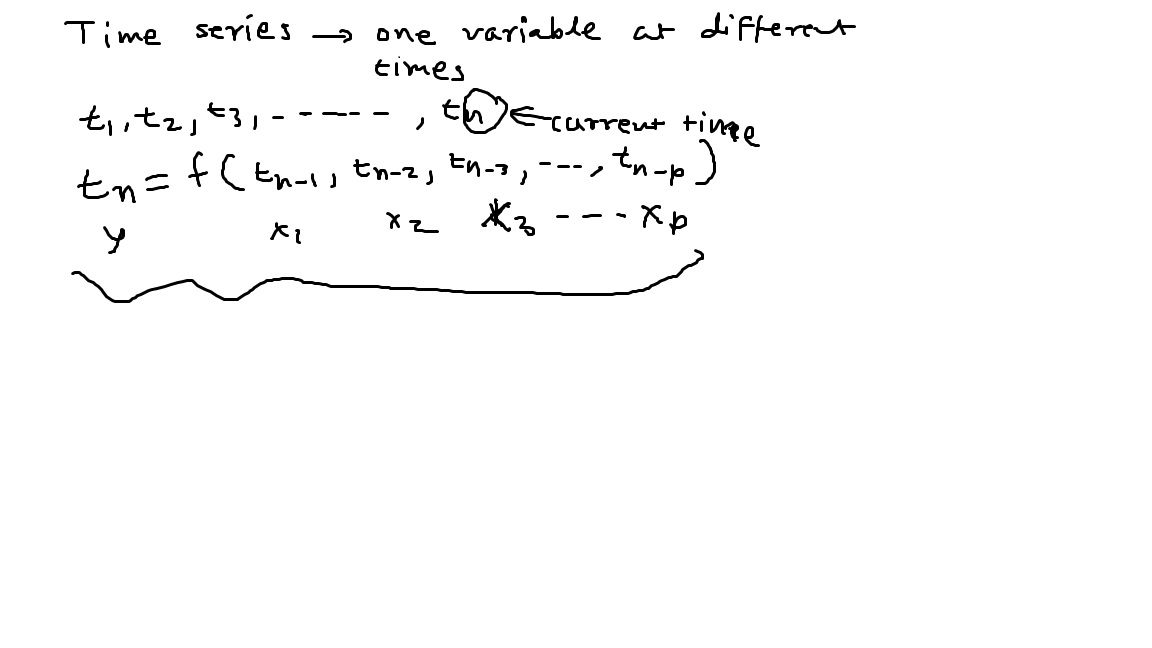 Time series → one variable at different
times
t₁, t₂, t₃, ------ , tₙ ← current time
tₙ = f(tₙ₋₁, tₙ₋₂, tₙ₋₃, ---, tₙ₋ₚ)
y x₁ x₂ x₃ ---- xₚ